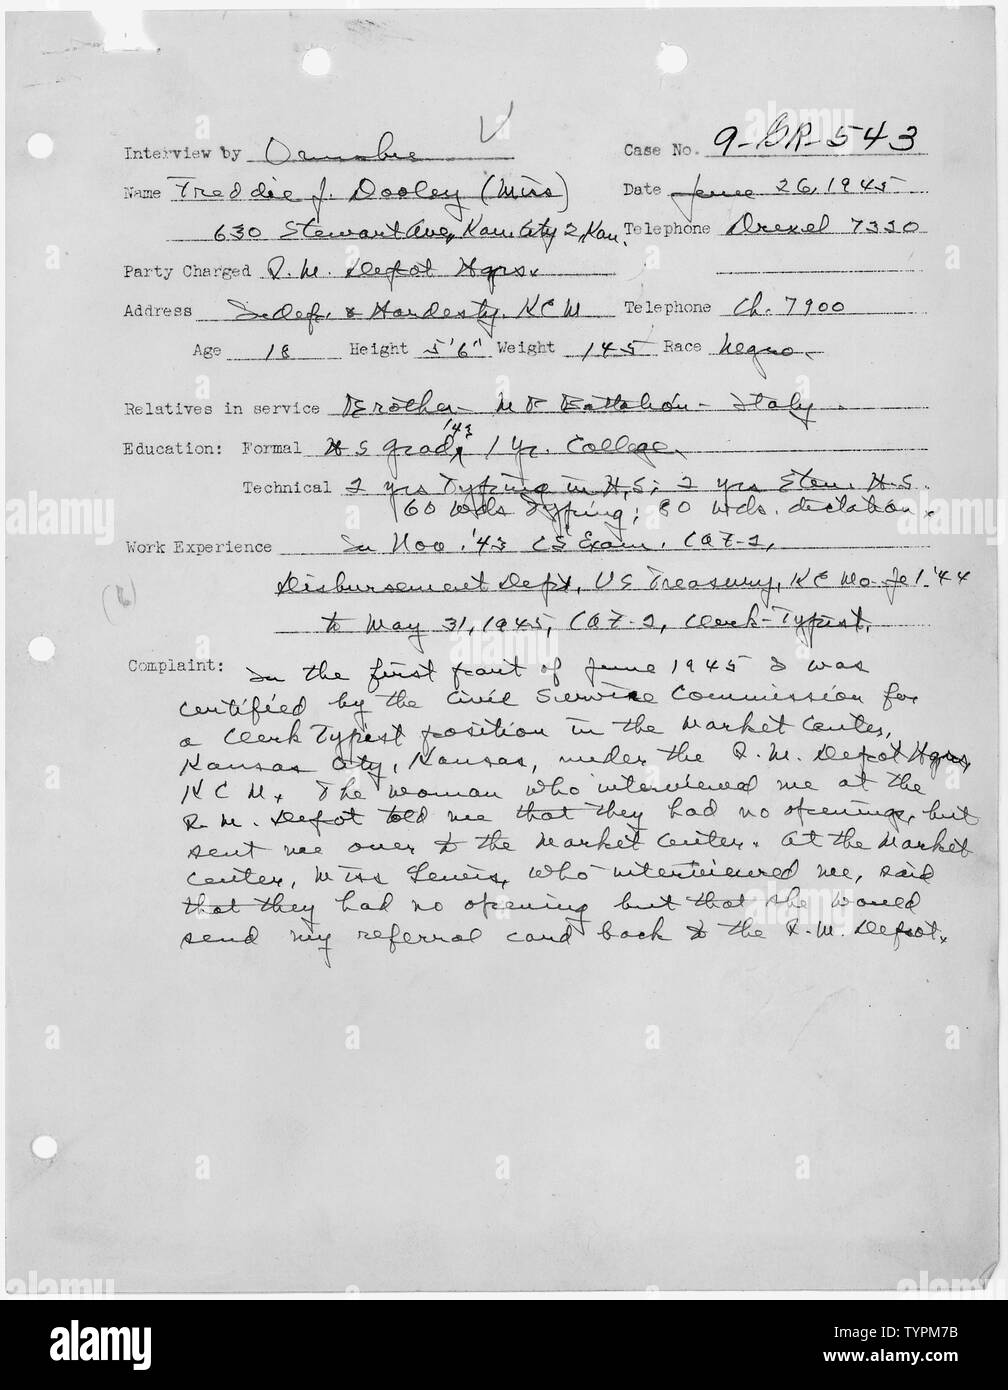 Case No. 9-GR-543
Interview by
Name Freddie J. Dooley (Miss) Date June 26, 1945
630 Stewart Ave, Kans City 2, Kan. Telephone Drexel 7330
Party Charged Q. M. Depot Hqrs.
Address & Hardesty, K C M Telephone Ch. 7900
Age 18 Height 5'6" Weight 145 Race Negro.
Relatives in service Brother - Battalion - Italy
Education: Formal H S grad, '43 1 yr. College.
Technical 2 yrs Typing in H.S; 2 yrs Sten. H.S.
60 wds Typing; 80 wds. dictation.
Work Experience In Nov. '43 CS Exam. CAF-2,
Disbursement Dept, US Treasury, K C Mo. '44
to May 31, 1945, CAF-2, Clerk-Typist.
(6)
Complaint: In the first part of June 1945 I was
certified by the Civil Service Commission for
a Clerk Typist position in the Market Center,
Kansas City, Kansas, under the Q. M. Depot Hqrs,
K C M. The woman who interviewed me at the
Q. M. Depot told me that they had no openings, but
sent me over to the Market Center. At the Market
Center, Miss Lewis, who interviewed me, said
that they had no opening but that she would
send my referral card back to the Q. M. Depot.
alamy
a
Image ID: TYPM7B
www.alamy.com